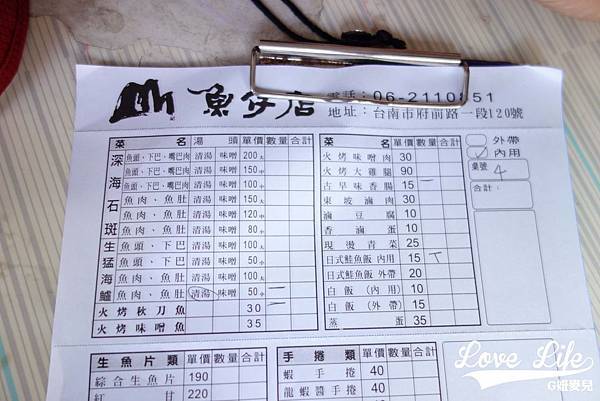 魚仔店
電話：06-2110851
地址：台南市府前路一段120號
菜 名 湯 頭 單價 數量 合計
深海石斑
魚頭、下巴、嘴巴肉 清湯 味噌 200大
魚頭、下巴、嘴巴肉 清湯 味噌 150中
魚頭、下巴、嘴巴肉 清湯 味噌 100小
魚肉、魚肚 清湯 味噌 150大
魚肉、魚肚 清湯 味噌 120中
魚肉、魚肚 清湯 味噌 80小
生猛海鱸
魚頭、下巴 清湯 味噌 100大
魚頭、下巴 清湯 味噌 50小
魚肉、魚肚 清湯 味噌 100大
魚肉、魚肚 清湯 味噌 50小 二
火烤秋刀魚 30
火烤味噌魚 35
菜 名 單價 數量 合計
火烤味噌肉 30
火烤大雞腿 90
古早味香腸 15 一
東坡滷肉 30
滷豆腐 10
香滷蛋 10
現燙青菜 25
日式鮭魚飯 內用 15 T
日式鮭魚飯 外帶 20
白飯（內用） 10
白飯（外帶） 15
蒸蛋 35
外帶
✓ 內用
桌號 4
合計：
生魚片類 單價 數量 合計
綜合生魚片 190
紅甘 220
手捲類 單價 數量 合計
蝦手捲 40
龍蝦醬手捲 40
Love Life
G妞麥兒